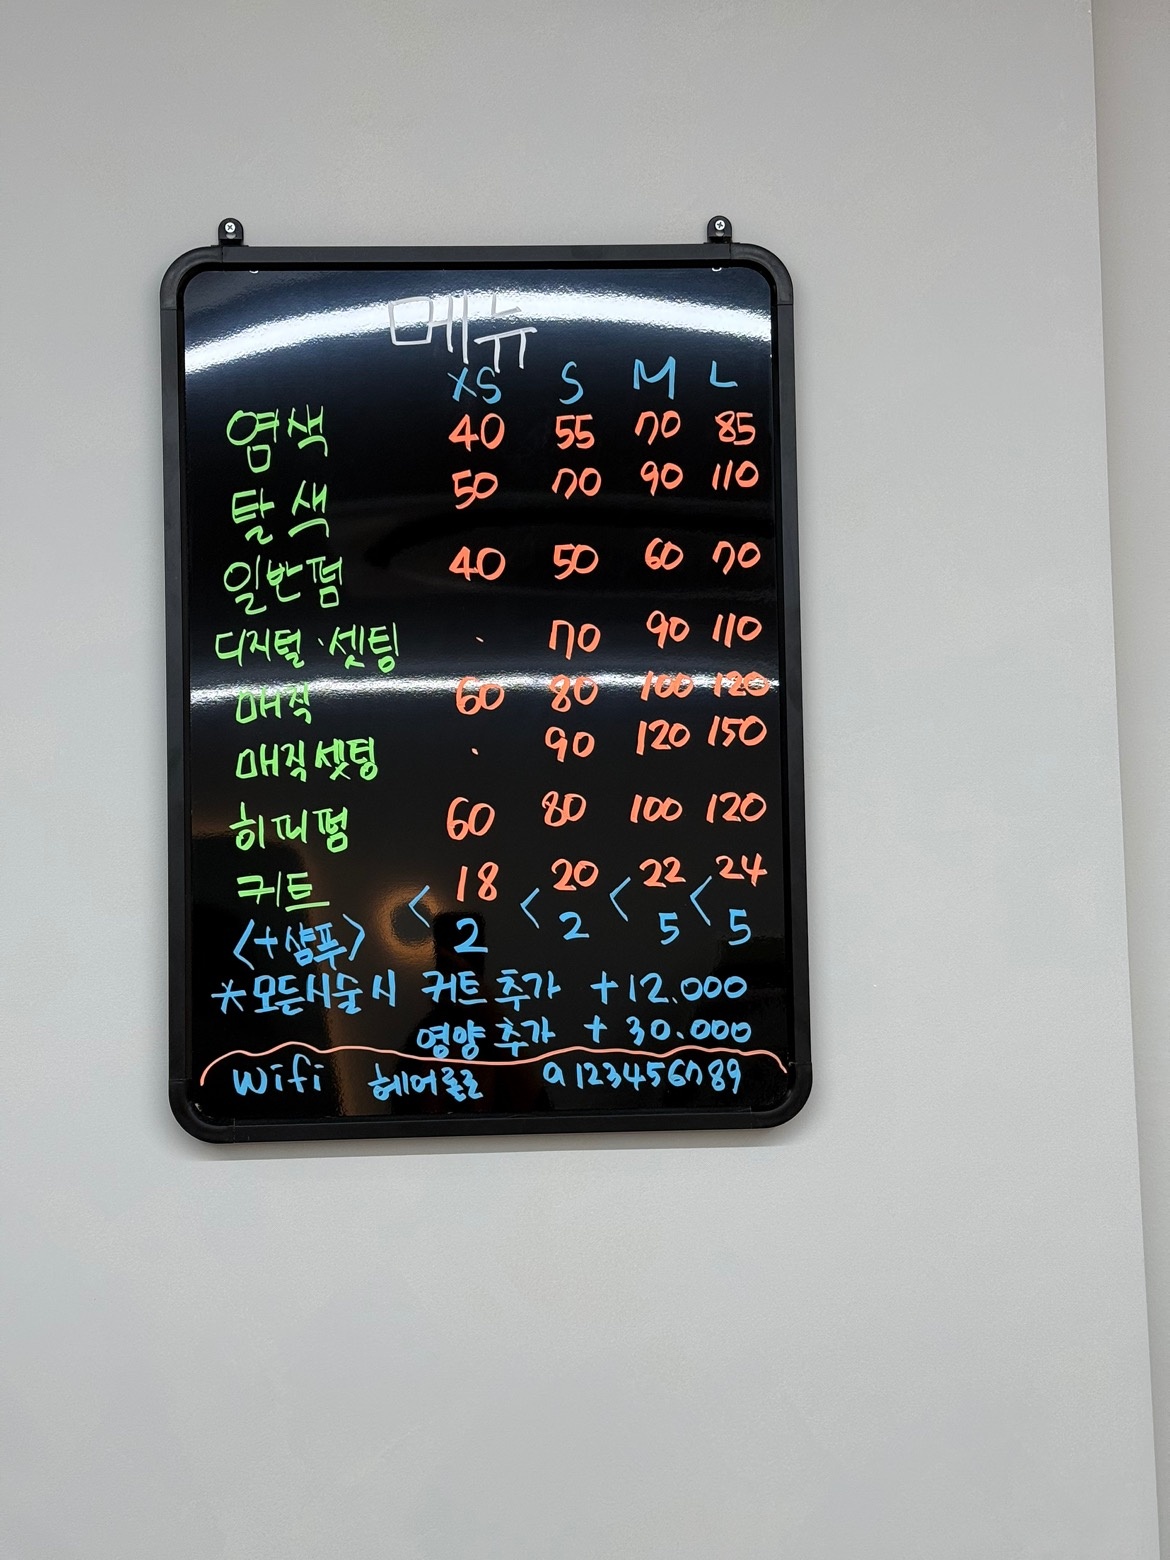 메뉴
XS S M L
염색 40 55 70 85
탈색 50 70 90 110
일반펌 40 50 60 70
디지털·셋팅 · 70 90 110
매직 60 80 100 120
매직셋팅 · 90 120 150
히피펌 60 80 100 120
커트 18 20 22 24
<+샴푸> < 2 < 2 < 5 < 5
*모든시술시 커트추가 +12.000
영양추가 + 30.000
Wifi 헤어룰루 a123456789